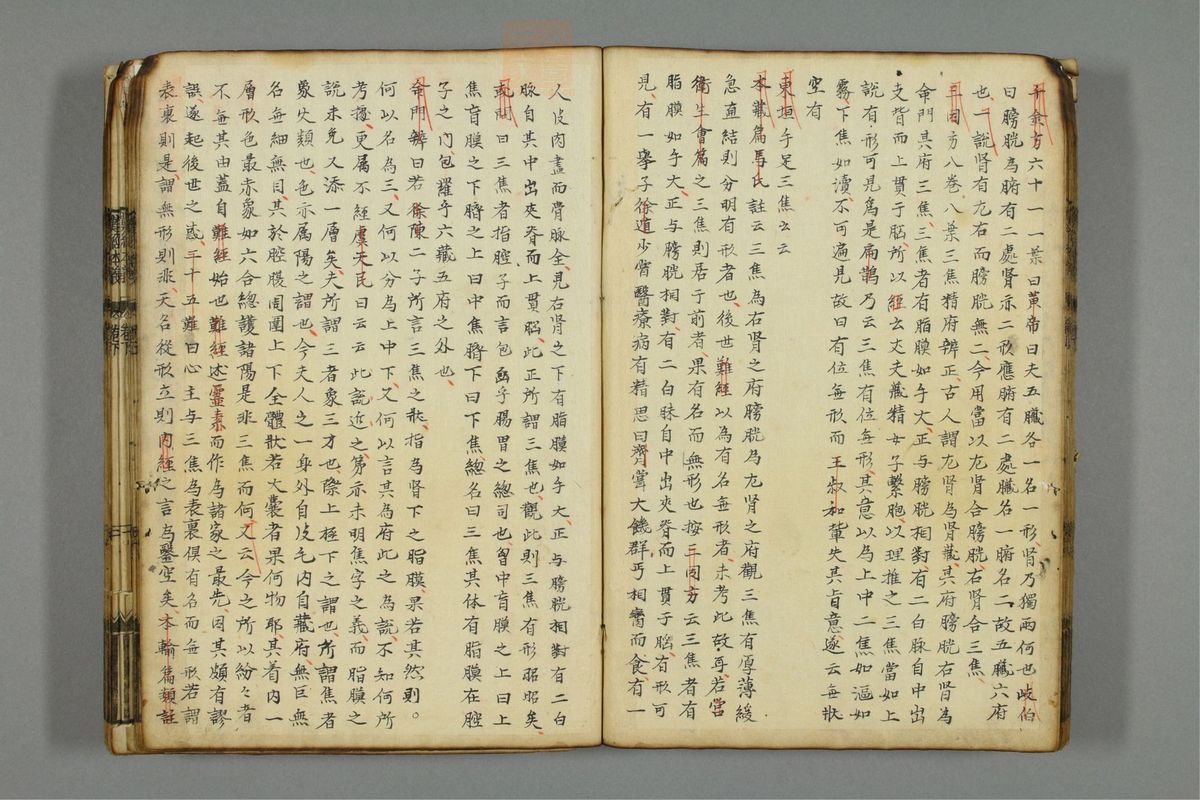 千金方六十一一葉曰黄帝曰夫五臓各一名一形、肾乃獨兩何也岐伯
曰膀胱為腑有二處肾亦二形應腑有二處臓名一腑名二故五臓六府
也、一説肾有左右而膀胱無二、今用當以左肾合膀胱、右肾合三焦、
三因方八巻、八葉三焦精府辨正、古人謂左肾為肾藏、其府膀胱右肾為
命門其府三焦、三焦者有脂膜如手大、正与膀胱相對、有二白脉自中出
夹脊而上貫于脳、所以經云丈夫藏精女子繫胞、以理推之三焦當如上
説有形可見為是扁鵲乃云三焦有位無形、其意以為上中二焦如漚如
霧、下焦如瀆、不可遍見故曰有位無形而王叔和輩失其旨意、遂云無状
空有
東垣手足三焦云云
本藏篇馬氏註云三焦為右肾之府膀胱為左肾之府觀三焦有厚薄緩
急直結則分明有形者也、後世難經以為有名無形者未考此故耳、若営
衛生會篇之三焦則居于前者、果有名而無形也按三因方云三焦者有
脂膜如手大、正与膀胱相對、有二白脉自中出夹脊而上貫于脳、有形可
見、有一擧子徐遁少甞醫療病有精思曰齊甞大饑群丐相臠而食有一
人皮肉盡而骨脉全見右肾之下有脂膜如手大正与膀胱相對有二白
脉自其中出夾脊而上貫脳、此正所謂三焦也、觀此則三焦有形昭昭矣
或問曰三焦者指腔子而言包函乎腸胃之總司也、胷中肓膜之上曰上
焦肓膜之下臍之上曰中焦臍下曰下焦、總名曰三焦其体有脂膜在腔
子之内、包羅乎六藏五府之外也、
命門辨曰若徐陳二子所言三焦之状、指為肾下之脂膜、果若其然則。
何以名為三、又何以分為上中下、又何以言其為府此之為説、不知何所
考擾、更属不經虞天民曰云云此説近之、第亦未明焦字之義而脂膜之
説未免又添一層矣、夫所謂三者象三才也、際上極下之謂也、所謂焦者
象火類也、色赤属陽之謂也、今夫人之一身外自皮毛内自藏府、無巨無
名無細無目、其於腔腹周圍上下全體状若大囊者果何物耶其着内一
層形色最赤象如六合總護諸陽是非三焦而何、又云今之所以紛々者
不無其由蓋自難經始也難經述靈素而作為諸家之最先、因其頗有謬
誤、遂起後世之惑、三十五難曰心主与三焦為表裏俱有名而無形若謂
表裏則是、謂無形則非、夫名從形立則内經之言為鑿空矣、本輸篇類註